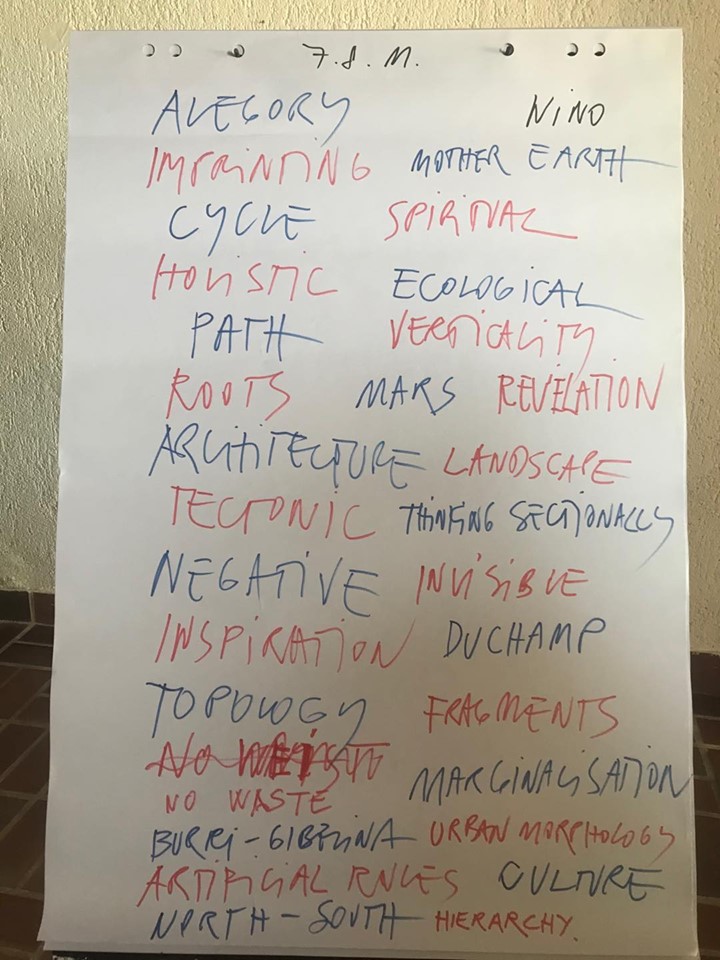 7.8.M.
ALEGORY NINO
IMPRINTING MOTHER EARTH
CYCLE SPIRITUAL
HOLISTIC ECOLOGICAL
PATH VERTICALITY
ROOTS MARS REVELATION
ARCHITECTURE LANDSCAPE
TECTONIC THINKING SECTIONALLY
NEGATIVE INVISIBLE
INSPIRATION DUCHAMP
TOPOLOGY FRAGMENTS
NO
NO WASTE MARGINALISATION
BURRI-GIBELINA URBAN MORPHOLOGY
ARTIFICIAL CULTURE
NORTH-SOUTH HIERARCHY.